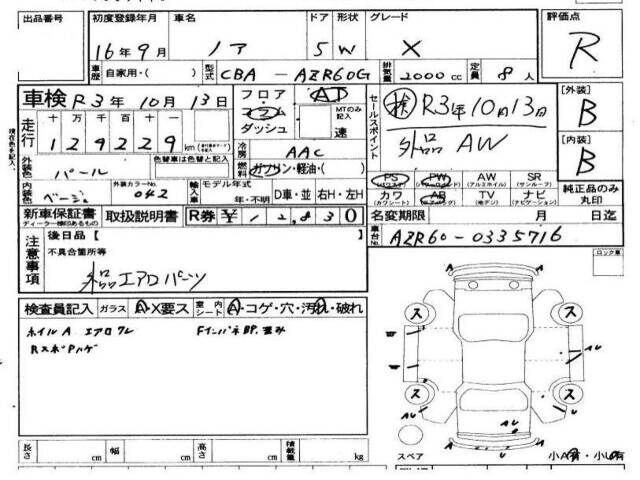 出品番号 初度登録年月 車名 ドア 形状 グレード 評価点
16年9月 ノア 5 W X R
車歴 自家用・( ) 型式 CBA-AZR60G 排気量 2000cc 定員 8人
車検 R3年10月13日 フロア コラム ダッシュ AT MTのみ記入 速
セールスポイント 検 R3年10月13日
外品 AW
[外装] B
[内装] B
走行 十 万 千 百 十 一
129229km
冷房 AAC
燃料 ガソリン・軽油・( )
外装色 パール 色替車は色替と記入
内装色 ベージュ 外装カラーNo. 042 輸入車 モデル年式 年・不明 D車・並 右H・左H
PS PW AW (アルミホイル) SR (サンルーフ)
カワ (カワシート) AB TV (地デジ) ナビ (ナビゲーション)
純正品のみ丸印
新車保証書 ディーラー様印あるもの 取扱説明書 R券 ¥12,830
名変期限 月 日迄
車台No. AZR60-0335716
注意事項 後日品【
不具合箇所等
外品エアロパーツ
ロック車
検査員記入 ガラス A・X要ス 室内シート A・コゲ・穴・汚れ・破れ
ホイルA エアロワレ FインパネBP、歪み
RスポPハゲ
ス ス
ス ス
長さ cm 幅 cm 高さ cm 積載量 kg
スペア 小A有・小U有